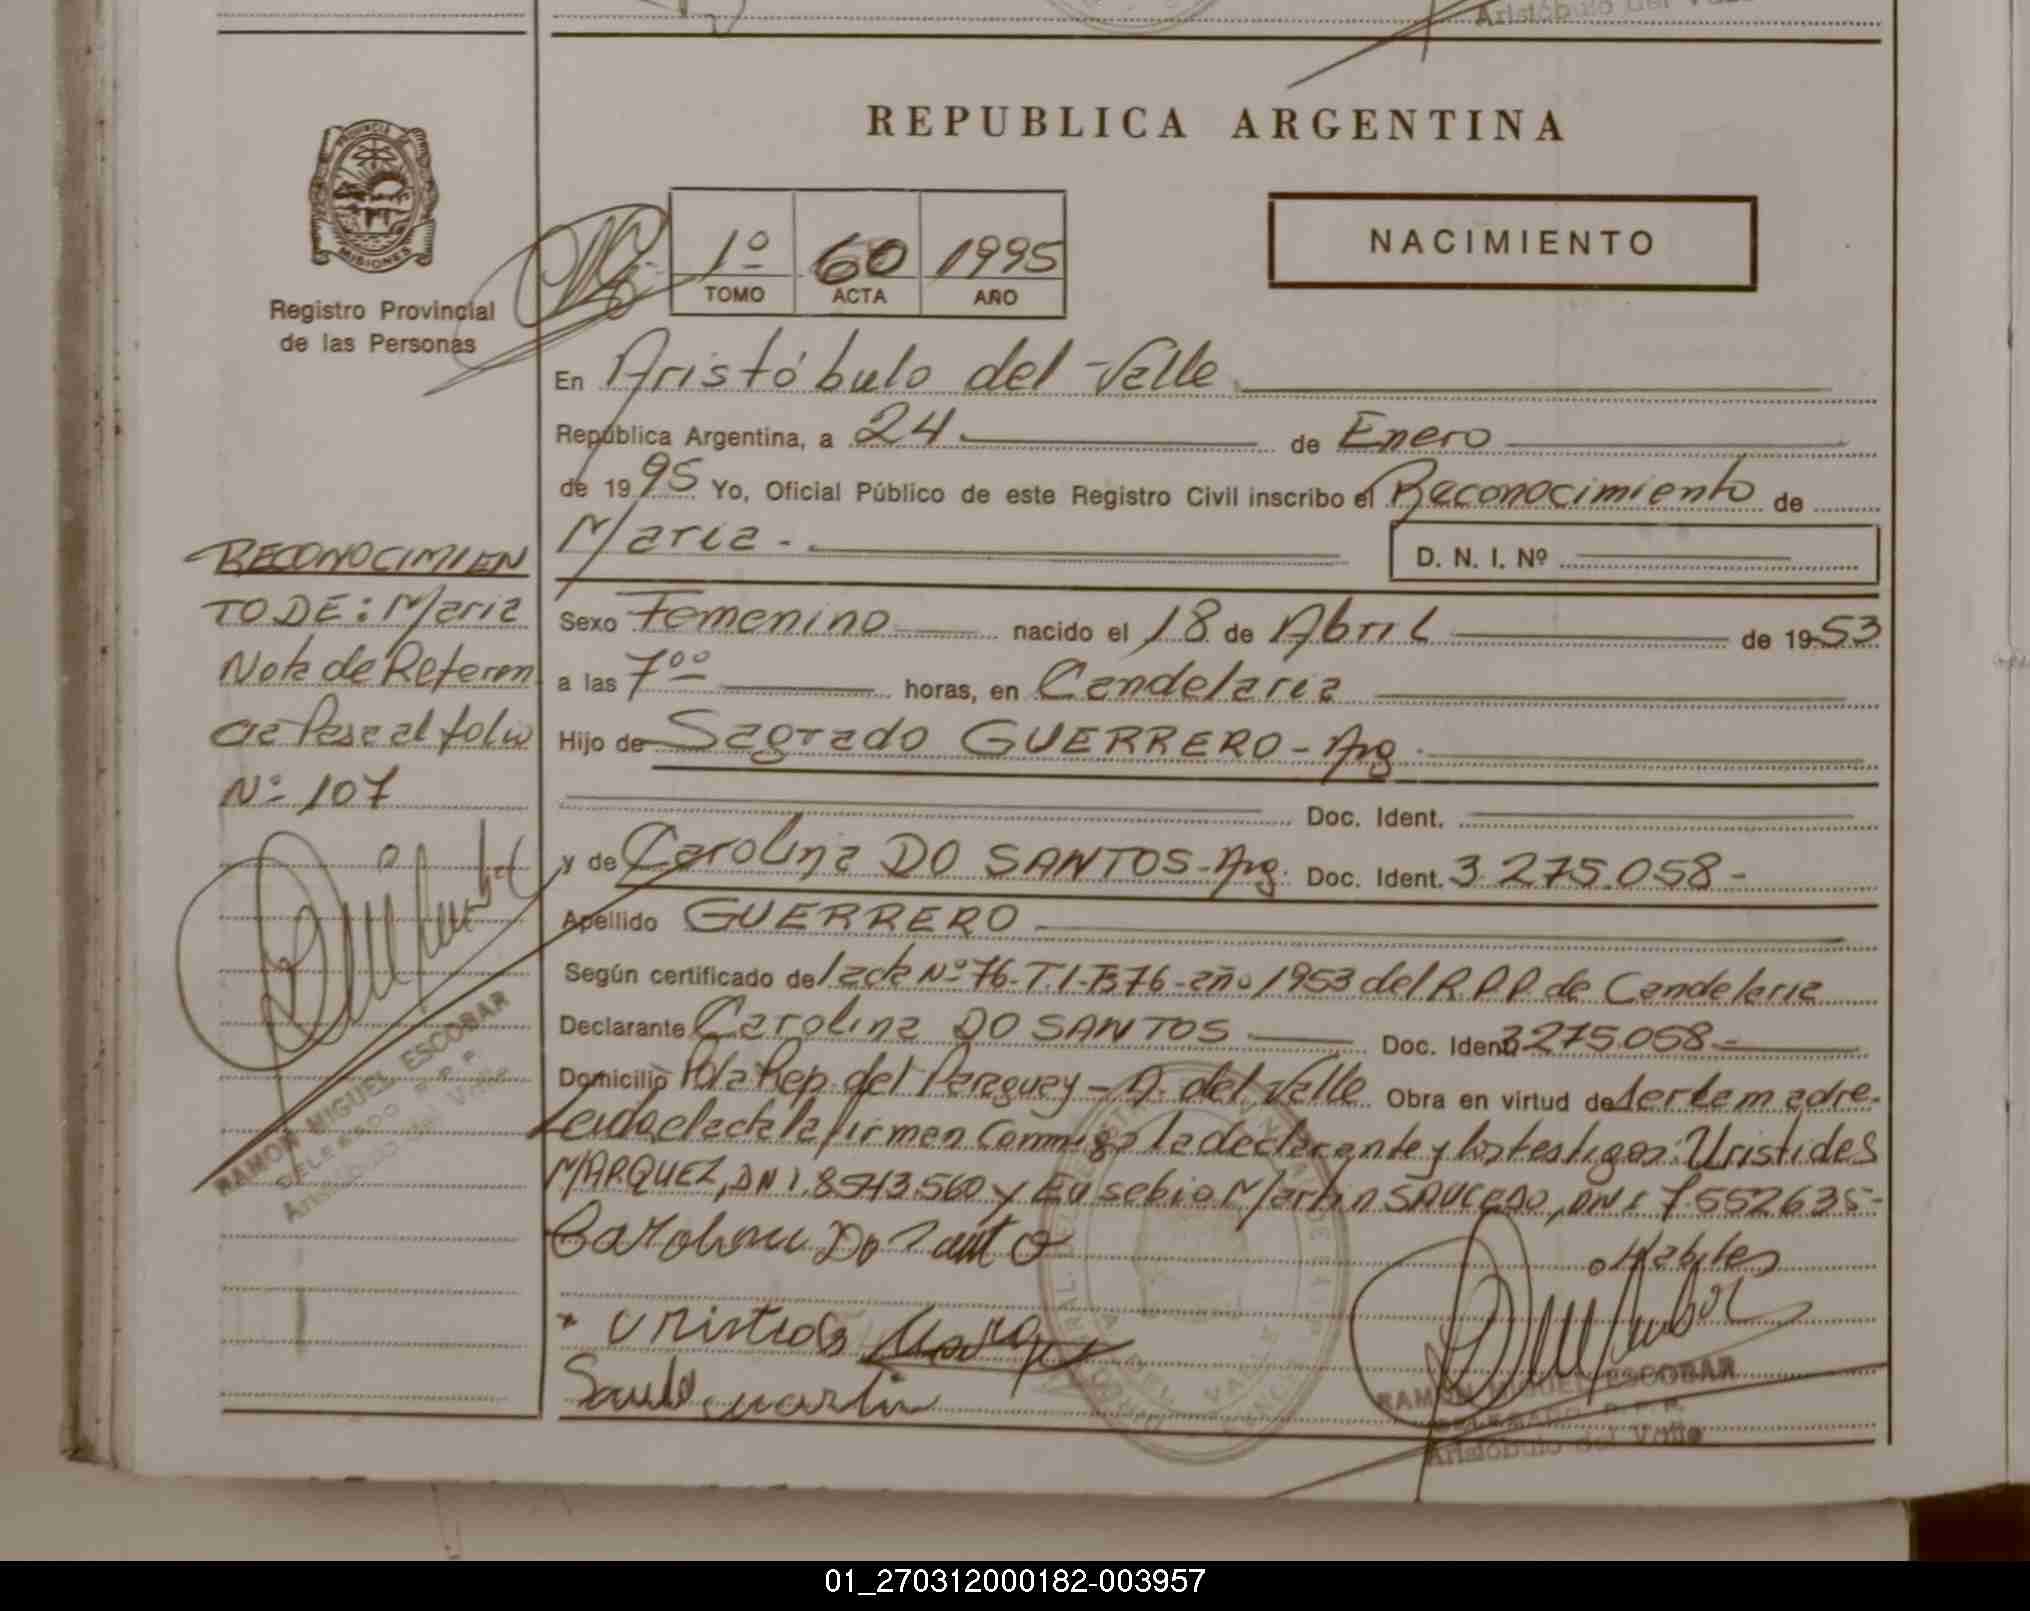 Aristóbulo del Valle
REPUBLICA ARGENTINA
PROVINCIA DE
MISIONES
1º 60 1995
TOMO ACTA AÑO
NACIMIENTO
Registro Provincial
de las Personas
En Aristóbulo del Valle
República Argentina, a 24 de Enero
de 1995 Yo, Oficial Público de este Registro Civil inscribo el Reconocimiento de
Maria.-
D. N. I. Nº
RECONOCIMIEN
TO DE: Maria
Nota de Referen
cia Pasa al folio
Nº 107
Sexo Femenino nacido el 18 de Abril de 1953
a las 7ºº horas, en Candelaria
Hijo de Sagrado GUERRERO - Arg.
Doc. Ident.
y de Carolina DO SANTOS - Arg. Doc. Ident. 3.275.058-
Apellido GUERRERO
Según certificado de l acta Nº 76-T.I-F376-año 1953 del R.P.P. de Candelaria
Declarante Carolina DO SANTOS Doc. Ident. 3275.058-
Domicilio Pcia Rep. del Paraguay - A. del Valle Obra en virtud de ser la madre.
Leida el acta la firman conmigo la declarante y los testigos: Uristides
MARQUEZ, DNI. 8.543.560 y Eusebio Martin SAUCEDO, DNI 7.552635-
Habiles
RAMON MIGUEL ESCOBAR
DELEGADO R.P.P.
Aristóbulo del Valle
RAMON MIGUEL ESCOBAR
DELEGADO R.P.P.
Aristóbulo del Valle
01_270312000182-003957